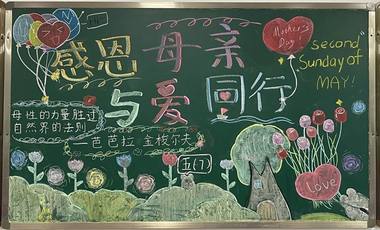 感恩母亲
Mother's
Day!
second
Sunday of
MAY!
与爱同行
母性的力量胜过
自然界的法则
芭芭拉 金梭尔夫
五(7)
Love